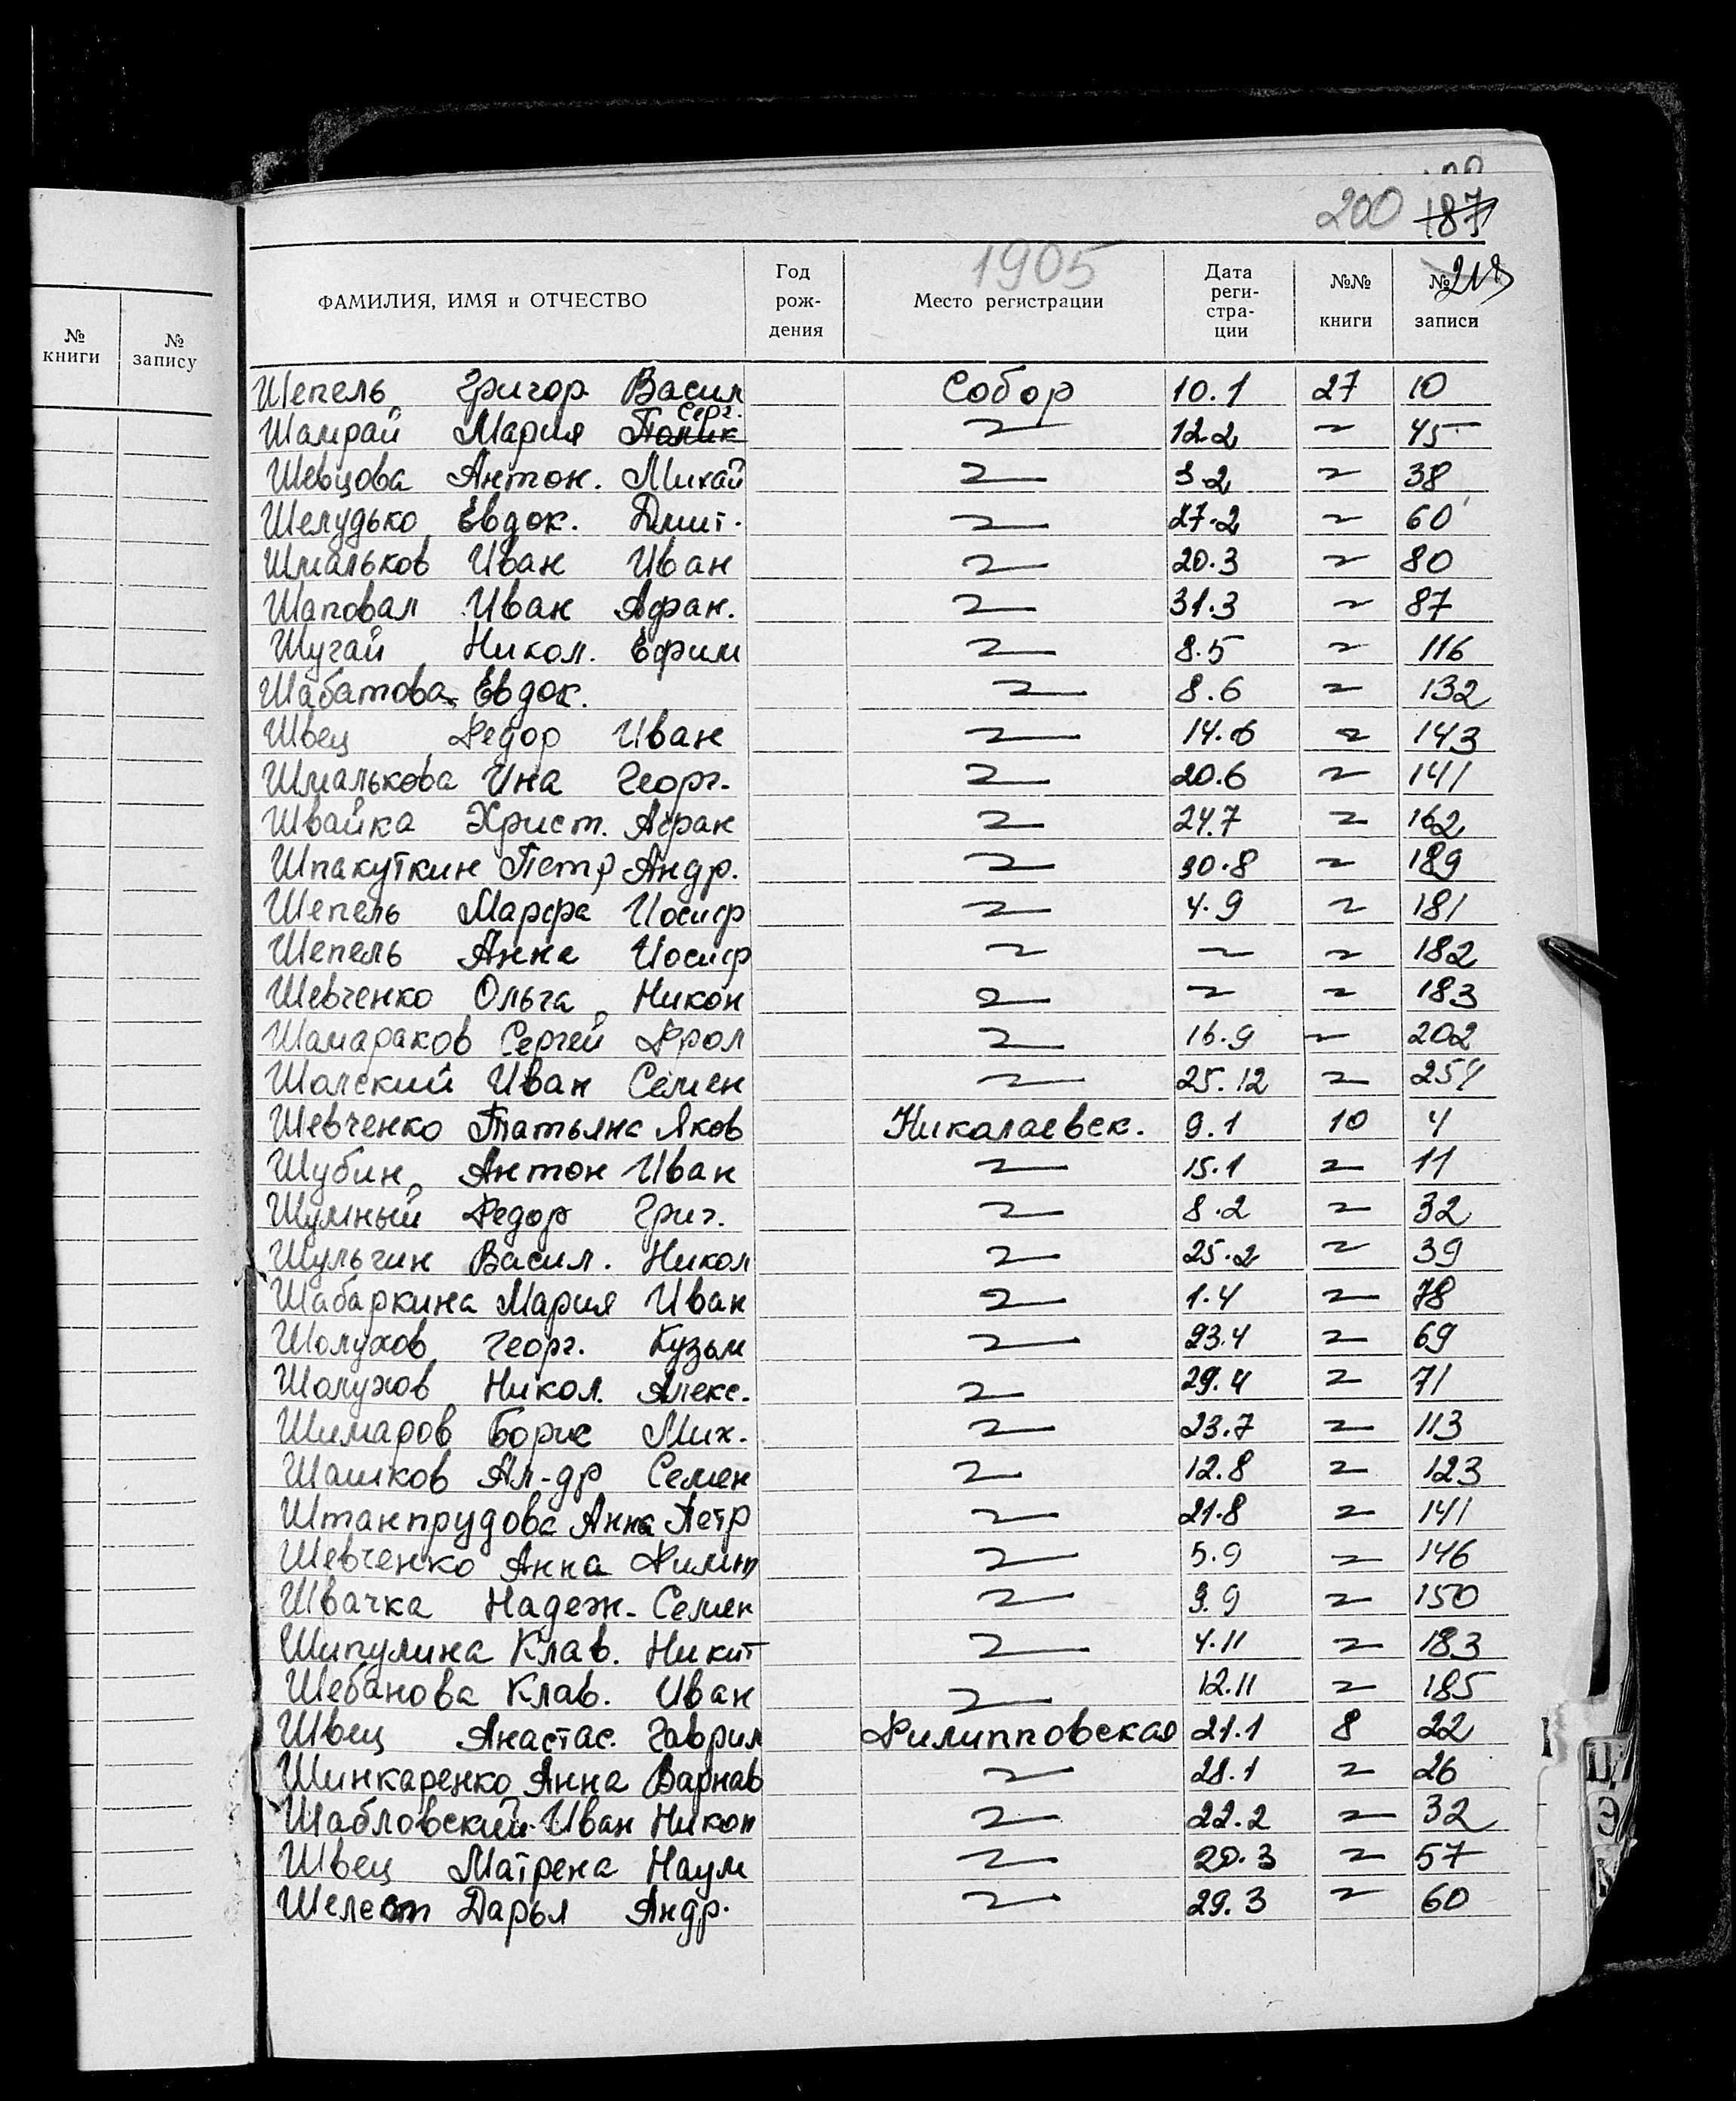 200 187
1905
218
№ книги № запису
ФАМИЛИЯ, ИМЯ и ОТЧЕСТВО Год рож-дения Место регистрации Дата реги-стра-ции №№ книги № записи
Шепель Григор. Васил Собор 10.1 27 10
Шамрай Мария Серг. 〃 12.2 〃 45
Шевцова Антон. Михай 〃 3.2 〃 38
Шелудько Евдок. Дмит. 〃 27.2 〃 60
Шмальков Иван Иван 〃 20.3 〃 80
Шаповал Иван Афан. 〃 31.3 〃 87
Шугай Никол. Ефим 〃 8.5 〃 116
Шабатова Евдок. 〃 8.6 〃 132
Швец Федор Иван 〃 14.6 〃 143
Шмалькова Ина Георг. 〃 20.6 〃 141
Швайка Христ. Афан 〃 24.7 〃 162
Шпакуткин Петр Андр. 〃 30.8 〃 189
Шепель Марфа Иосиф 〃 4.9 〃 181
Шепель Анна Иосиф 〃 〃 〃 182
Шевченко Ольга Никон 〃 〃 〃 183
Шамараков Сергей Фрол 〃 16.9 〃 202
Шалский Иван Семен 〃 25.12 〃 251
Шевченко Татьяна Яков Николаевск. 9.1 10 4
Шубин Антон Иван 〃 15.1 〃 11
Шумный Федор Григ. 〃 8.2 〃 32
Шульгин Васил. Никол 〃 25.2 〃 39
Шабаркина Мария Иван 〃 1.4 〃 78
Шолухов Георг. Кузьм 〃 23.4 〃 69
Шолухов Никол. Алекс. 〃 29.4 〃 71
Шимаров Борис Мих. 〃 23.7 〃 113
Шашков Ал-др Семен 〃 12.8 〃 123
Штанпрудова Анна Петр 〃 21.8 〃 141
Шевченко Анна Филип 〃 5.9 〃 146
Швачка Надеж. Семен 〃 3.9 〃 150
Шипулина Клав. Никит 〃 4.11 〃 183
Шебанова Клав. Иван 〃 12.11 〃 185
Швец Анастас. Гаврил Филипповская 21.1 8 22
Шинкаренко Анна Варнав 〃 28.1 〃 26
Шабловский Иван Никон 〃 22.2 〃 32
Швец Матрена Наум 〃 20.3 〃 57
Шелест Дарья Андр. 〃 29.3 〃 60
Э